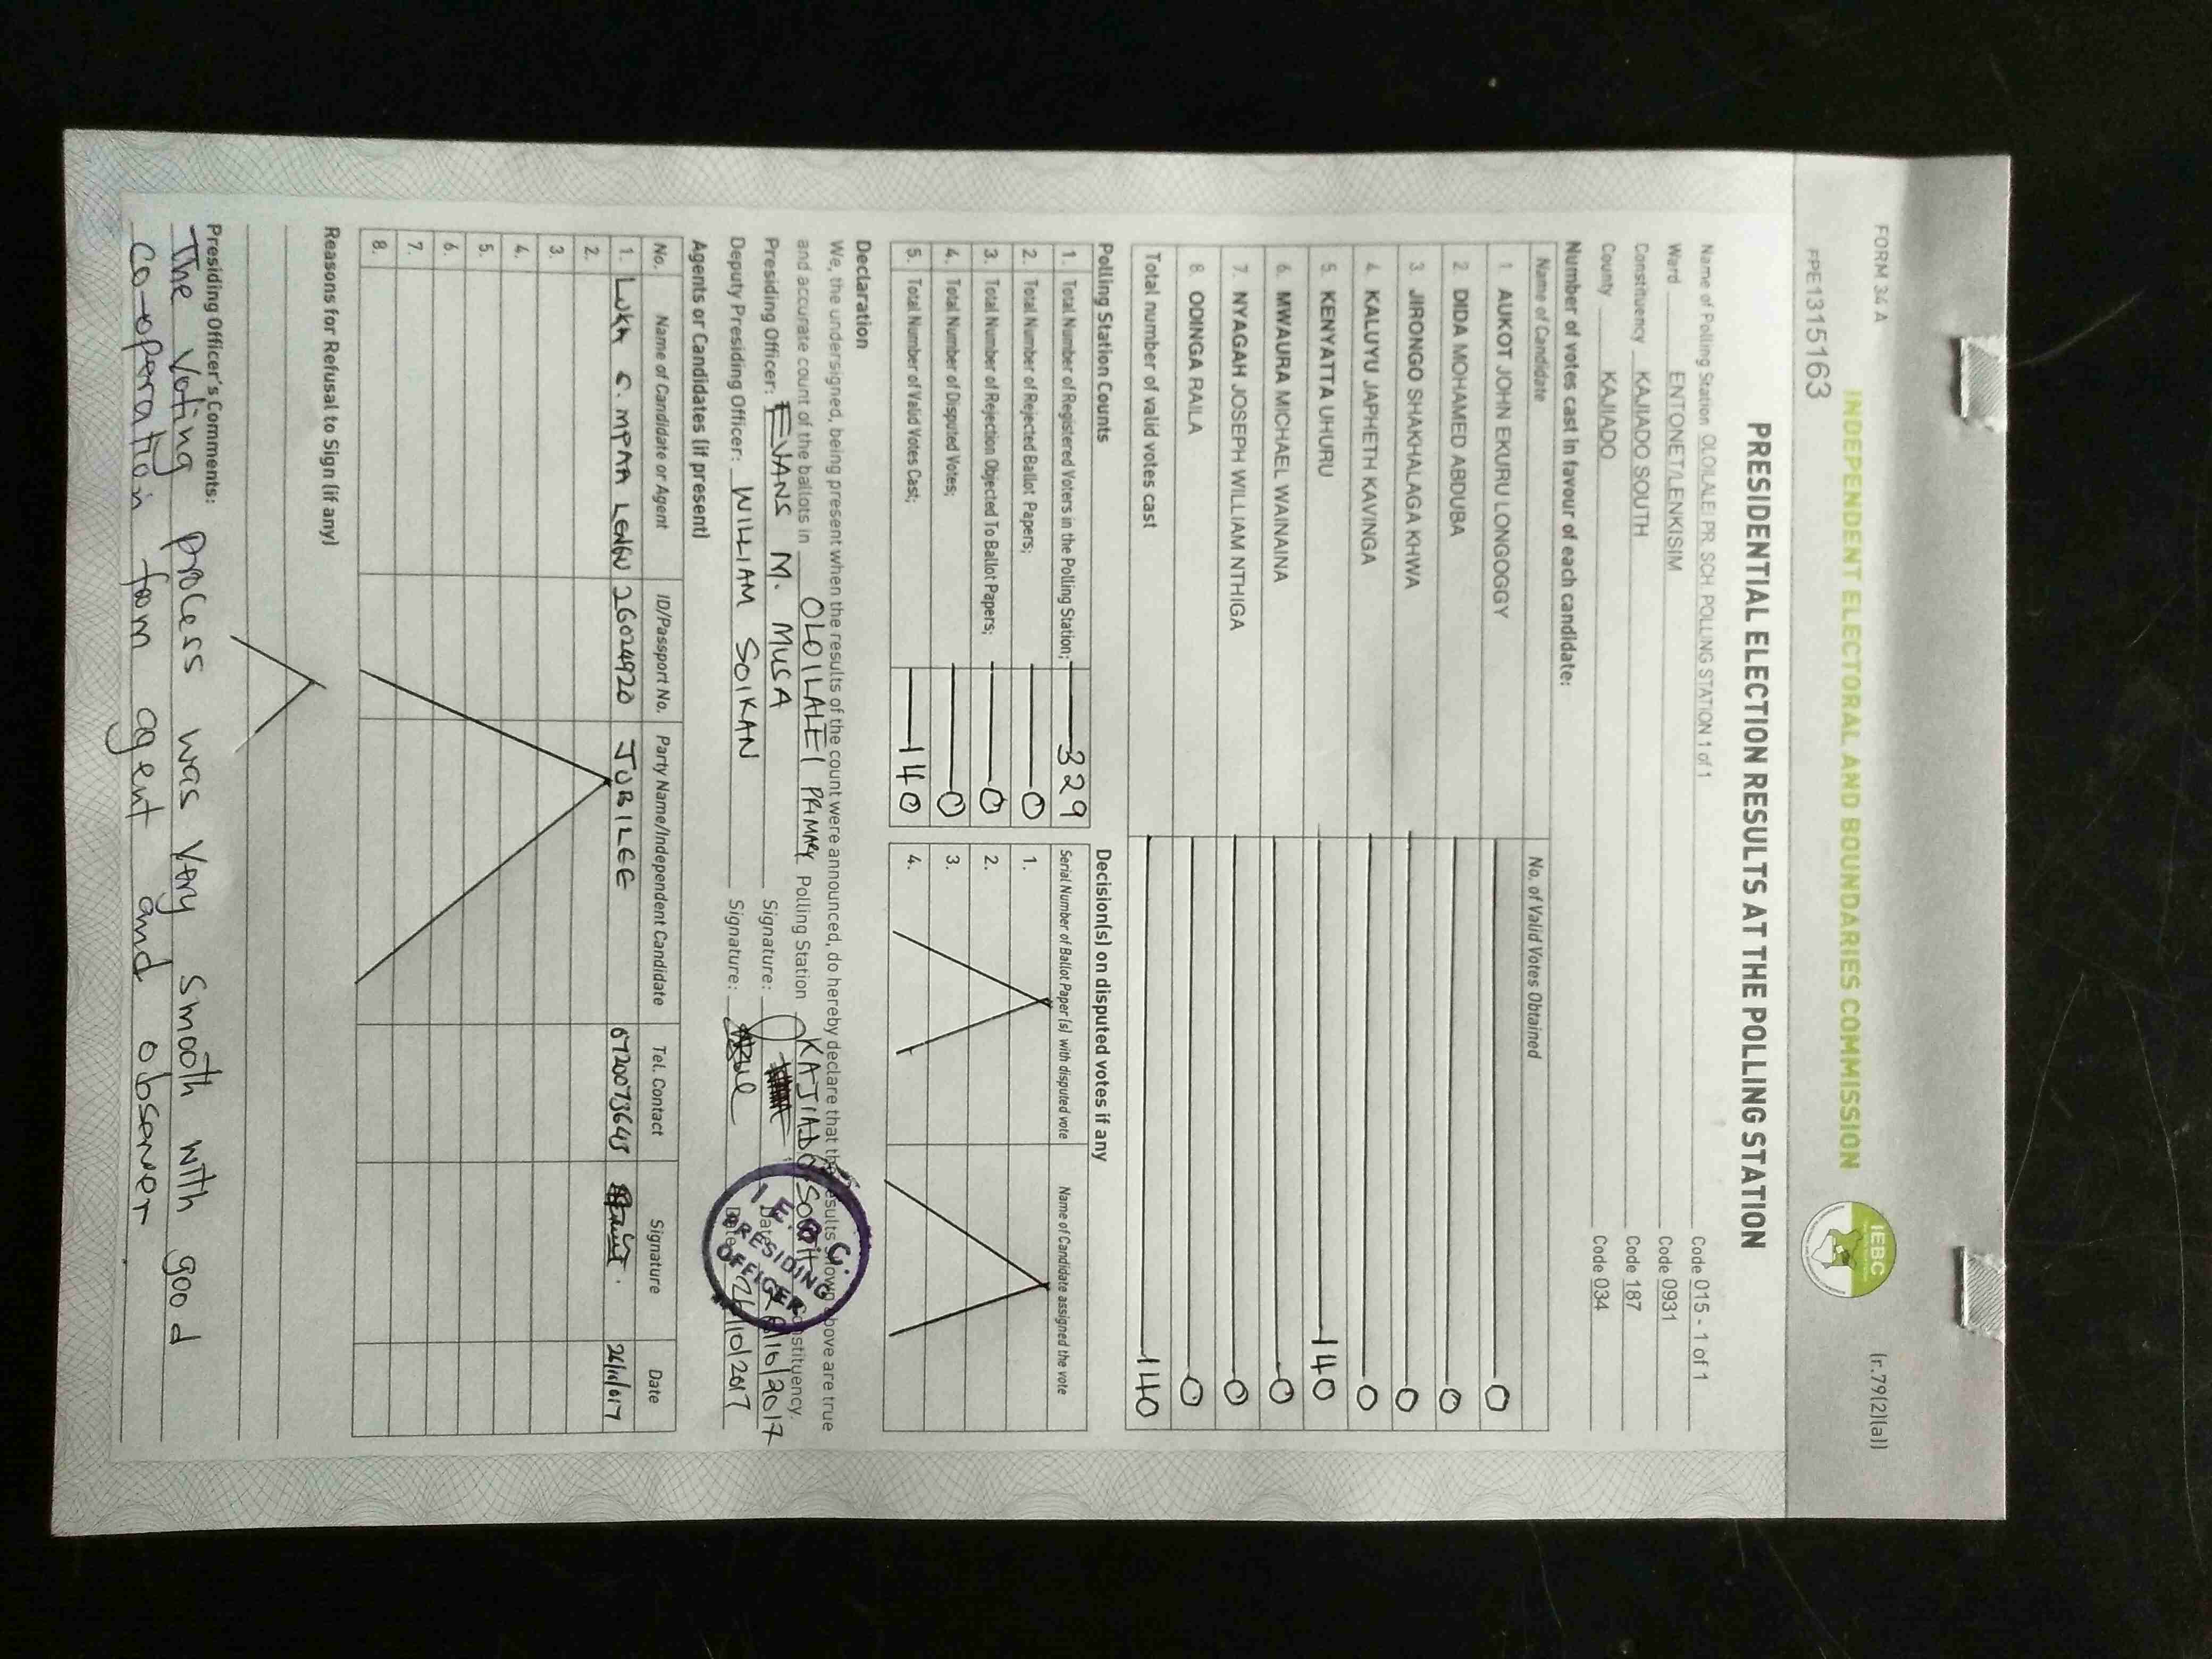 FORM 34 A
(r.79(2)(a))
INDEPENDENT ELECTORAL AND BOUNDARIES COMMISSION
IEBC
FPE1315163
PRESIDENTIAL ELECTION RESULTS AT THE POLLING STATION
Name of Polling Station OLOILALEI PR. SCH POLLING STATION 1 of 1 Code 015 - 1 of 1
Ward ENTONET/LENKISIM Code 0931
Constituency KAJIADO SOUTH Code 187
County KAJIADO Code 034
Number of votes cast in favour of each candidate:
Name of Candidate No. of Valid Votes Obtained
1. AUKOT JOHN EKURU LONGOGGY 0
2. DIDA MOHAMED ABDUBA 0
3. JIRONGO SHAKHALAGA KHWA 0
4. KALUYU JAPHETH KAVINGA 0
5. KENYATTA UHURU 140
6. MWAURA MICHAEL WAINAINA 0
7. NYAGAH JOSEPH WILLIAM NTHIGA 0
8. ODINGA RAILA 0
Total number of valid votes cast 140
Polling Station Counts
1. Total Number of Registered Voters in the Polling Station; 329
2. Total Number of Rejected Ballot Papers; 0
3. Total Number of Rejection Objected To Ballot Papers; 0
4. Total Number of Disputed Votes; 0
5. Total Number of Valid Votes Cast; 140
Decision(s) on disputed votes if any
Serial Number of Ballot Paper (s) with disputed vote Name of Candidate assigned the vote
1.
2.
3.
4.
Declaration
We, the undersigned, being present when the results of the count were announced, do hereby declare that the results shown above are true
and accurate count of the ballots in OLOILALEI PRIMARY Polling Station KAJIADO SOUTH Constituency.
Presiding Officer: EVANS M. MUSA Signature: Date: 26/10/2017
Deputy Presiding Officer: WILLIAM SOIKAN Signature: Date: 26/10/2017
I.E.B.C.
PRESIDING
OFFICER
Agents or Candidates (if present)
No. Name of Candidate or Agent ID/Passport No. Party Name/Independent Candidate Tel. Contact Signature Date
1. LUKA MPAA 26024920 JUBILEE
2.
3.
4.
5.
6.
7.
8.
Reasons for Refusal to Sign (if any)
Presiding Officer's Comments:
The voting process was very smooth with good
co-operation from agent and observer